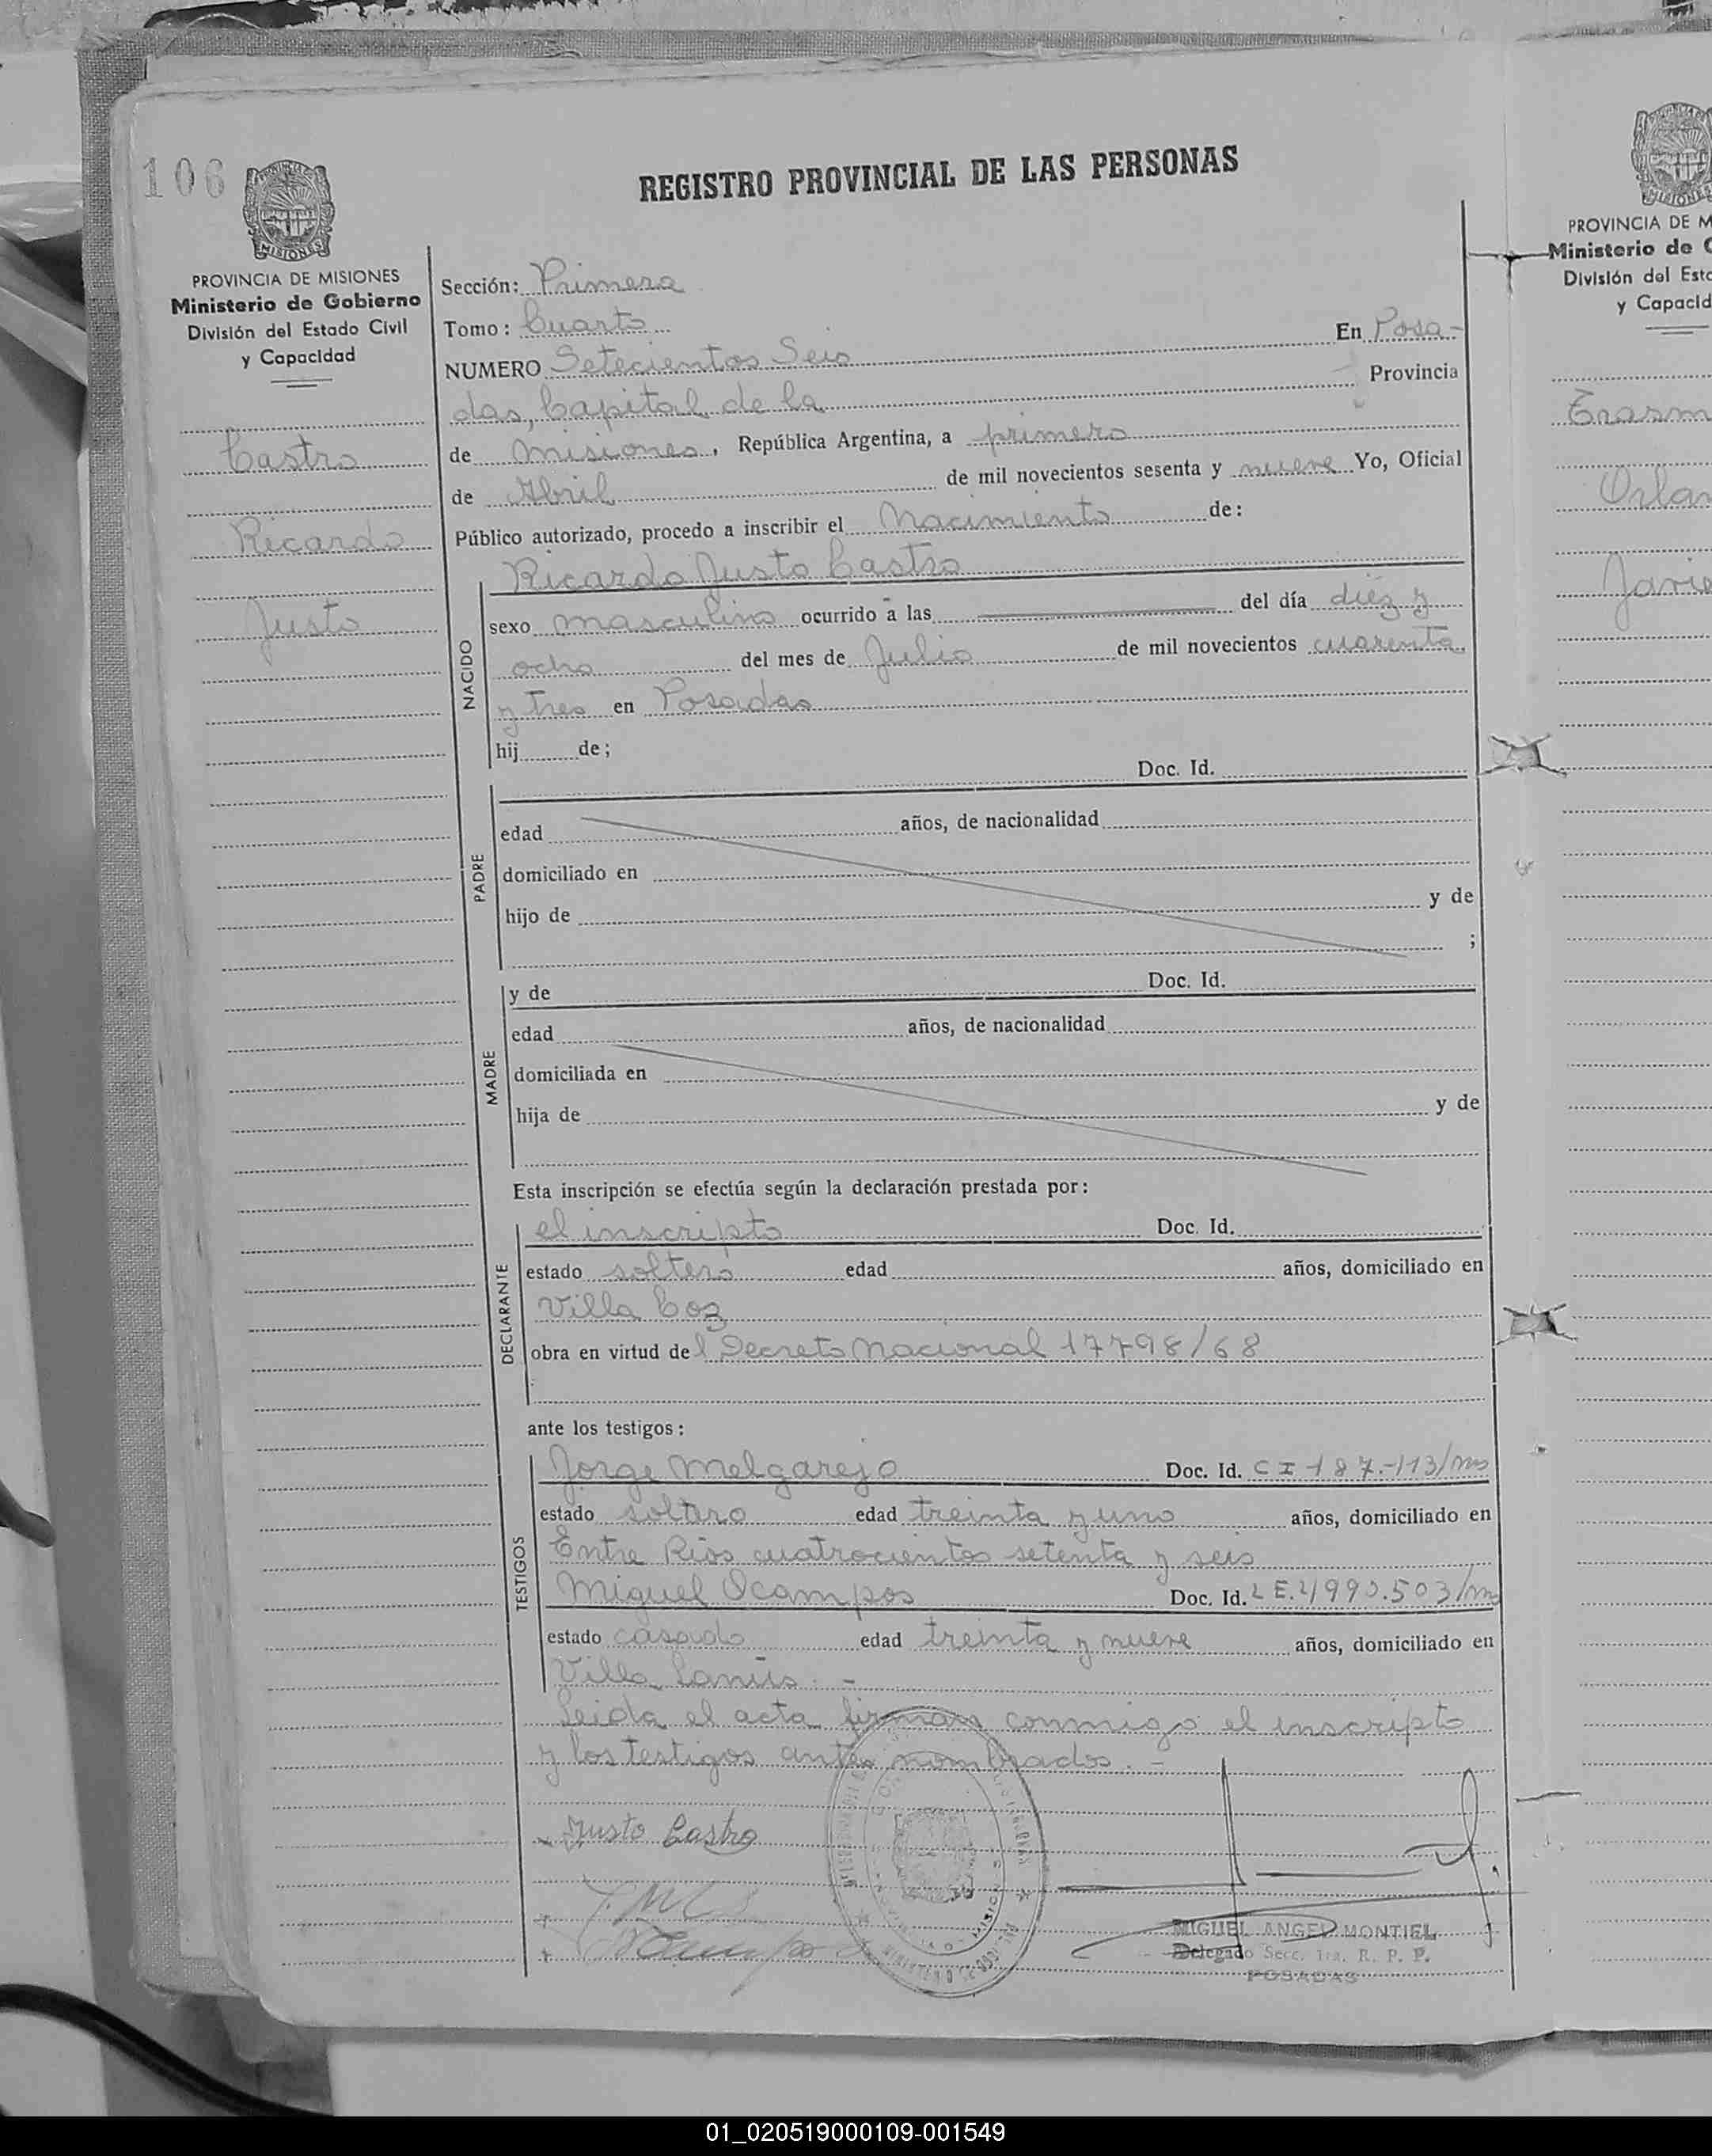 106
REGISTRO PROVINCIAL DE LAS PERSONAS
MISIONES
PROVINCIA DE MISIONES
Ministerio de Gobierno
División del Estado Civil
y Capacidad
Castro
Ricardo
Justo
Sección: Primera
Tomo: Cuarto
En Posa-
NUMERO Setecientos Seis
das, Capital de la Provincia
de Misiones, República Argentina, a primero
de Abril de mil novecientos sesenta y nueve Yo, Oficial
Público autorizado, procedo a inscribir el Nacimiento de:
Ricardo Justo Castro
NACIDO
sexo masculino ocurrido a las del día diez y
ocho del mes de Julio de mil novecientos cuarenta
y tres en Posadas
hij de;
Doc. Id.
PADRE
edad años, de nacionalidad
domiciliado en
hijo de y de
;
y de Doc. Id.
MADRE
edad años, de nacionalidad
domiciliada en
hija de y de
Esta inscripción se efectúa según la declaración prestada por:
el inscripto Doc. Id.
DECLARANTE
estado soltero edad años, domiciliado en
Villa Coz
obra en virtud del Decreto Nacional 17798/68
ante los testigos:
Jorge Melgarejo Doc. Id. CI 187.-113/ms
TESTIGOS
estado soltero edad treinta y uno años, domiciliado en
Entre Rios cuatrocientos setenta y seis
Miguel Ocampos Doc. Id. LE.4990.503/m
estado casado edad treinta y nueve años, domiciliado en
Villa Lanús.-
Leida el acta firman conmigo el inscripto
y los testigos antes nombrados.-
Justo Castro
MIGUEL ANGEL MONTIEL
Delegado Secc. 1ra. R. P. P.
POSADAS
PROVINCIA DE M
Ministerio de G
División del Esta
y Capacid
Erasm
Orlan
Javie
01_020519000109-001549